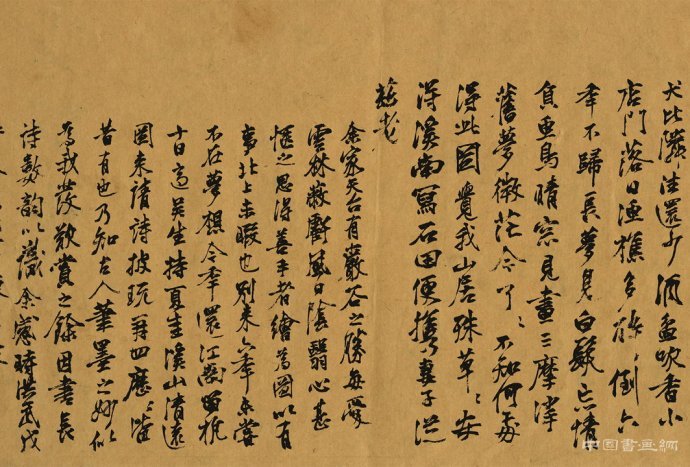 犬比灘洼還少酒盃吹香小
店門落日漁樵多醉倒六
年不歸長夢見白髮忘情
負魚鳥晴窓見畫三摩挲
舊夢微茫今了了不知何處
得此圖覺我山居殊草草安
得溪南冩石田便攜妻子從
余家天台有巖石之勝每愛
雲林巖壑風日陰翳心甚
愜之思得善手者繪為圖以自
事北上未暇也別來六年未嘗
不在夢想今年還江郡留杭
十日高吳生持夏圭溪山清遠
圖來請詩披玩再四歷歷皆
昔有也乃知古人筆墨之妙似
為我發歎賞之餘因書長
詩數韵以識余歲時洪武戊